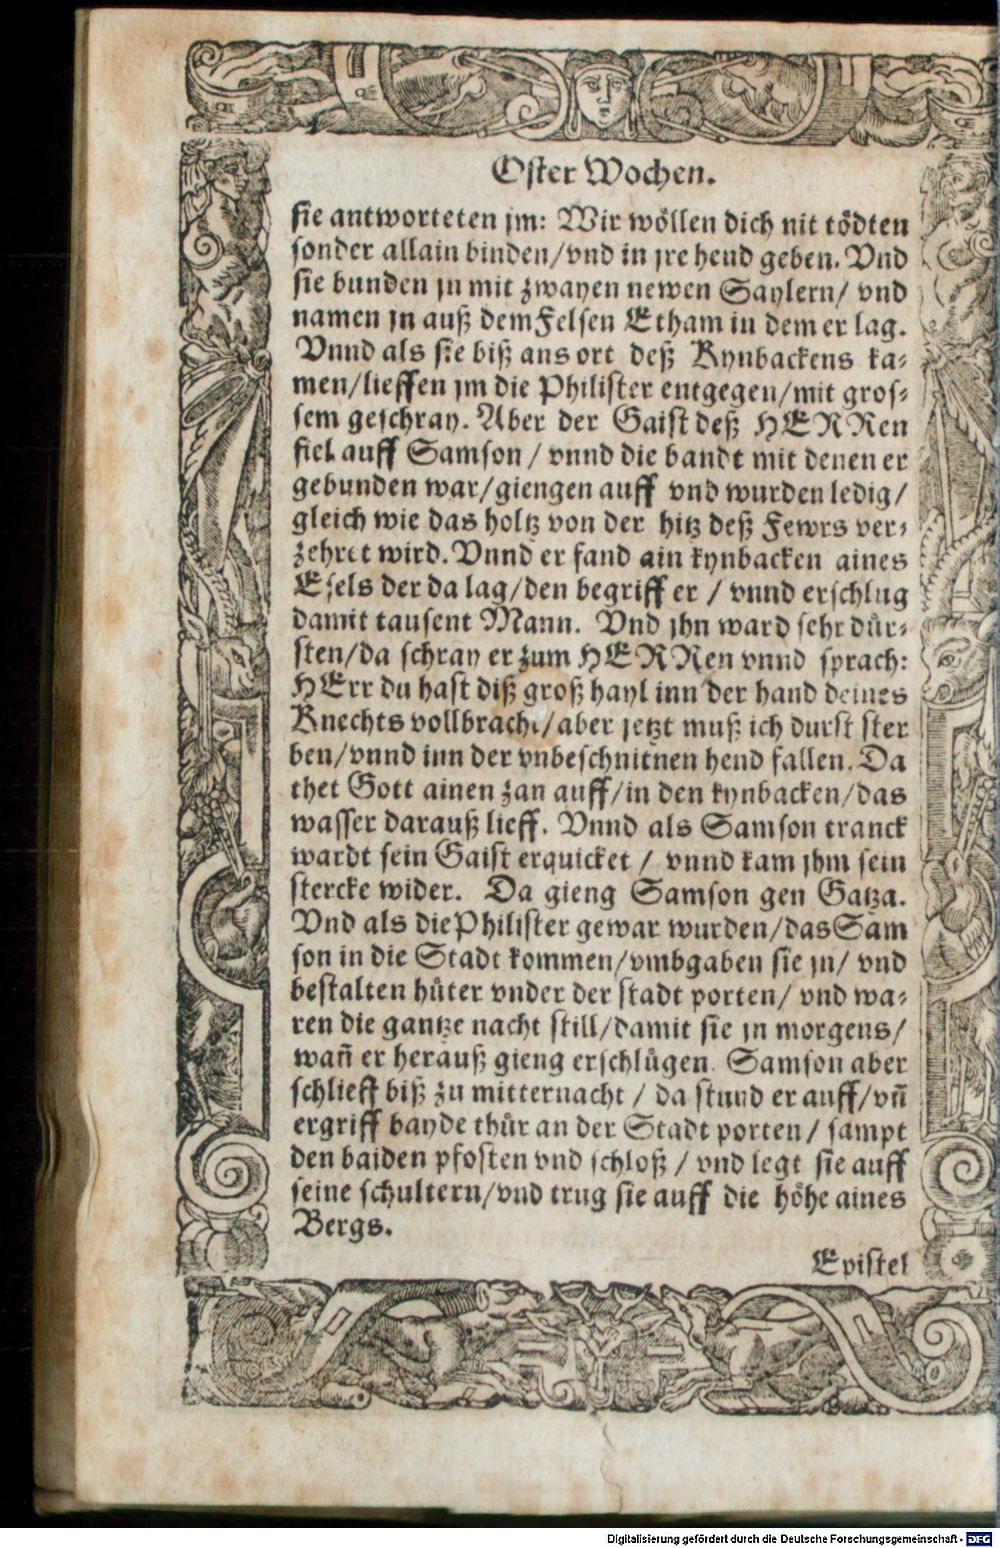 Oster Wochen.
sie antworteten jm: Wir wöllen dich nit tödten
sonder allain binden/vnd in jre hend geben. Vnd
sie bunden jn mit zwayen newen Saylern/ vnd
namen jn auß dem Felsen Etham in dem er lag.
Vnnd als sie biß ans ort deß Kynbackens ka-
men/lieffen jm die Philister entgegen/mit gros-
sem geschray. Aber der Gaist deß HERRen
fiel auff Samson / vnnd die bandt mit denen er
gebunden war/giengen auff vnd wurden ledig/
gleich wie das holtz von der hitz deß Fewrs ver-
zehret wird. Vnnd er fand ain kynbacken aines
Esels der da lag/den begriff er / vnnd erschlug
damit tausent Mann. Vnd jhn ward sehr dür-
sten/da schray er zum HERRen vnnd sprach:
HErr du hast diß groß hayl inn der hand deines
Knechts vollbracht/aber jetzt muß ich durst ster
ben/vnnd inn der vnbeschnitnen hend fallen. Da
thet Gott ainen zan auff/in den kynbacken/das
wasser darauß lieff. Vnnd als Samson tranck
wardt sein Gaist erquicket / vnnd kam jhm sein
stercke wider. Da gieng Samson gen Gatza.
Vnd als die Philister gewar wurden/das Sam
son in die Stadt kommen/vmbgaben sie jn/ vnd
bestalten hüter vnder der stadt porten/ vnd wa-
ren die gantze nacht still/damit sie jn morgens/
wañ er herauß gieng erschlügen. Samson aber
schlieff biß zu mitternacht / da stund er auff/vñ
ergriff bayde thür an der Stadt porten/ sampt
den baiden pfosten vnd schloß / vnd legt sie auff
seine schultern/vnd trug sie auff die höhe aines
Bergs.
Epistel
Digitalisierung gefördert durch die Deutsche Forschungsgemeinschaft - DFG